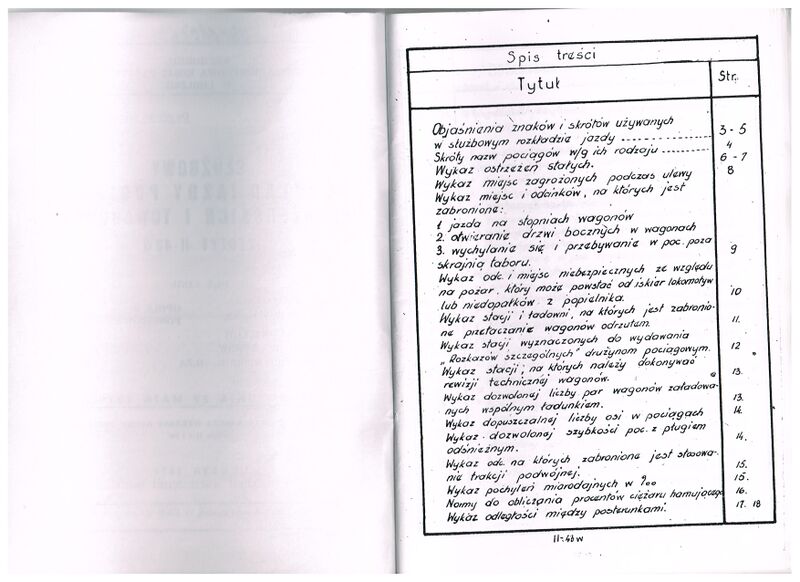 Spis treści
Tytuł
Str.
Objaśnienia znaków i skrótów używanych
w służbowym rozkładzie jazdy 3 - 5
Skróty nazw pociągów w/g ich rodzaju 4
Wykaz ostrzeżeń stałych. 6 - 7
Wykaz miejsc zagrożonych podczas ulewy 8
Wykaz miejsc i odcinków, na których jest
zabronione:
1 jazda na stopniach wagonów
2. otwieranie drzwi bocznych w wagonach
3. wychylanie się i przebywanie w poc. poza
skrajnią taboru. 9
Wykaz odc. i miejsc niebezpiecznych ze względu
na pożar, który może powstać od iskier lokomotyw
lub niedopałków z popielnika. 10
Wykaz stacji i ładowni, na których jest zabronio-
ne przetaczanie wagonów odrzutem. 11.
Wykaz stacji wyznaczonych do wydawania
"Rozkazów szczególnych" drużynom pociągowym. 12
Wykaz stacji, na których należy dokonywać
rewizji technicznej wagonów. 13.
Wykaz dozwolonej liczby par wagonów załadowa-
nych wspólnym ładunkiem. 13.
Wykaz dopuszczalnej liczby osi w pociągach 14.
Wykaz dozwolonej szybkości poc. z pługiem
odśnieżnym. 14.
Wykaz odc. na których zabronione jest stosowa-
nie trakcji podwójnej. 15.
Wykaz pochyleń miarodajnych w ‰ 15.
Normy do obliczania procentów ciężaru hamującego 16.
Wykaz odległości między posterunkami. 17. 18
II-46w